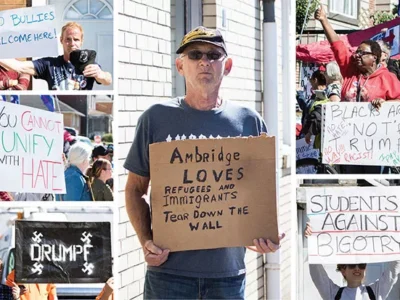 BULLIES
LCOME HERE!
YOU CANNOT
UNIFY
WITH HATE
DRUMPF
AMBRIDGE
LOVES
REFUGEES AND
IMMIGRANTS
TEAR DOWN THE
WALL
BLACKS A
"NOT"
RUM
RACIST!
STUDENTS
AGAINST
BIGOTRY